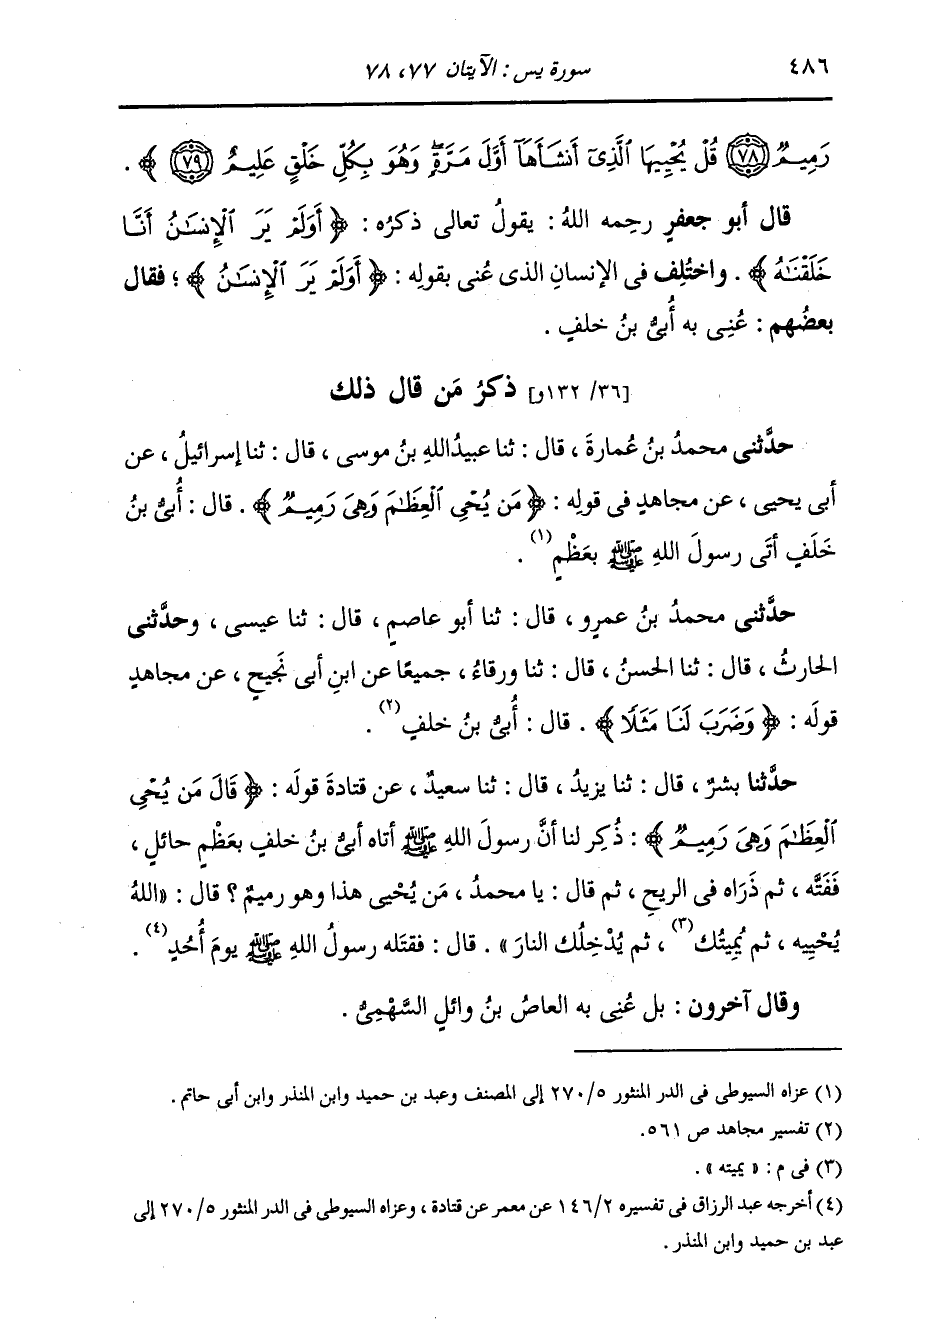 ٤٨٦ سورة يس : الآيتان ٧٧، ٧٨
رَمِيمٌ ﴿٧٨﴾ قُلْ يُحْيِيهَا ٱلَّذِىٓ أَنشَأَهَآ أَوَّلَ مَرَّةٍۖ وَهُوَ بِكُلِّ خَلْقٍ عَلِيمٌ ﴿٧٩﴾ ﴾ .
قال أبو جعفرٍ رحمه اللهُ : يقولُ تعالى ذكرُه : ﴿ أَوَلَمْ يَرَ ٱلْإِنسَٰنُ أَنَّا
خَلَقْنَٰهُ ﴾ . واختُلِف فى الإنسانِ الذى عُنى بقولِه : ﴿ أَوَلَمْ يَرَ ٱلْإِنسَٰنُ ﴾ ؛ فقال
بعضُهم : عُنِى به أُبىُّ بنُ خلفٍ .
[٣٦/ ١٣٢و] ذكرُ مَن قال ذلك
حدَّثنى محمدُ بنُ عُمارةَ ، قال : ثنا عبيدُ اللهِ بنُ موسى ، قال : ثنا إسرائيلُ ، عن
أبى يحيى ، عن مجاهدٍ فى قولِه : ﴿ مَن يُحْىِ ٱلْعِظَٰمَ وَهِىَ رَمِيمٌ ﴾ . قال : أُبىُّ بنُ
خَلَفٍ أتَى رسولَ اللهِ ﷺ بعَظْمٍ(١) .
حدَّثنى محمدُ بنُ عمرٍو ، قال : ثنا أبو عاصمٍ ، قال : ثنا عيسى ، وحدَّثنى
الحارثُ ، قال : ثنا الحسنُ ، قال : ثنا ورقاءُ ، جميعًا عن ابنِ أبى نَجيحٍ ، عن مجاهدٍ
قولَه : ﴿ وَضَرَبَ لَنَا مَثَلًا ﴾ . قال : أُبىُّ بنُ خلفٍ(٢) .
حدَّثنا بشرٌ ، قال : ثنا يزيدُ ، قال : ثنا سعيدٌ ، عن قتادةَ قولَه : ﴿ قَالَ مَن يُحْىِ
ٱلْعِظَٰمَ وَهِىَ رَمِيمٌ ﴾ : ذُكِر لنا أنَّ رسولَ اللهِ ﷺ أتاه أبىُّ بنُ خلفٍ بعَظْمٍ حائلٍ ،
ففَتَّه ، ثم ذَرَاه فى الريحِ ، ثم قال : يا محمدُ ، مَن يُحْيى هذا وهو رميمٌ ؟ قال : «اللهُ
يُحْيِيه ، ثم يُميتُك(٣) ، ثم يُدْخِلُك النارَ» . قال : فقتَله رسولُ اللهِ ﷺ يومَ أُحُدٍ(٤) .
وقال آخرون : بل عُنِى به العاصُ بنُ وائلٍ السَّهْمِىُّ .
(١) عزاه السيوطى فى الدر المنثور ٢٧٠/٥ إلى المصنف وعبد بن حميد وابن المنذر وابن أبى حاتم .
(٢) تفسير مجاهد ص ٥٦١.
(٣) فى م : « يميته » .
(٤) أخرجه عبد الرزاق فى تفسيره ١٤٦/٢ عن معمر عن قتادة ، وعزاه السيوطى فى الدر المنثور ٢٧٠/٥ إلى
عبد بن حميد وابن المنذر .